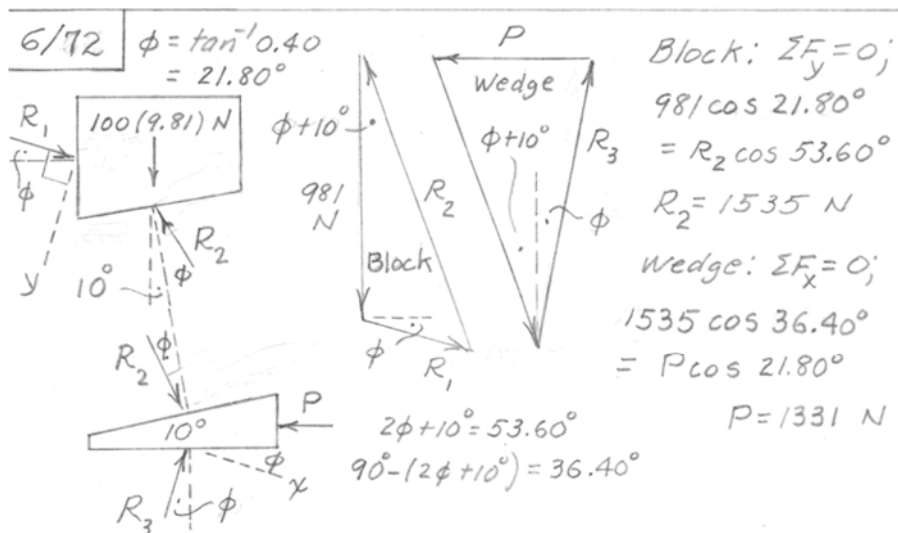 6/72
ϕ = tan⁻¹ 0.40
= 21.80°
R₁
100(9.81) N
ϕ
y
10°
R₂
ϕ
R₂
ϕ
10°
P
R₃
ϕ
ϕ
x
ϕ+10°
981
N
R₂
Block
ϕ
R₁
P
Wedge
ϕ+10°
R₃
ϕ
2ϕ+10° = 53.60°
90°-(2ϕ+10°) = 36.40°
Block: ΣF_y = 0;
981 cos 21.80°
= R₂ cos 53.60°
R₂ = 1535 N
Wedge: ΣFₓ = 0;
1535 cos 36.40°
= P cos 21.80°
P = 1331 N